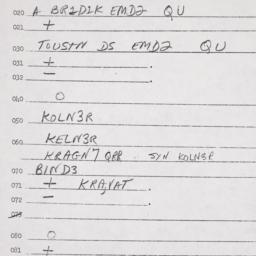 020 A BR2D2K EMD2 QU
021 +
030 TOUSTN DS EMD2 QU
031 + .
032 − .
040 O
050 KOLN3R
KELN3R
060
KRAGN7 QRR . SYN KOLN3R
070 BIND3
071 + KRAVAT .
072 − .
073
080 O
081 +